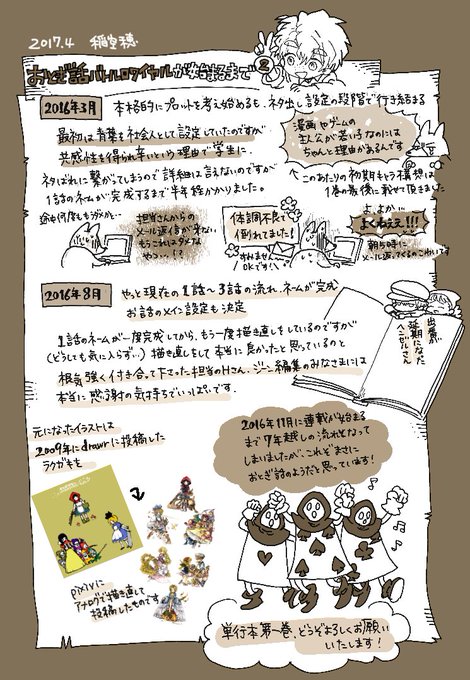 2017.4 稲空穂
おとぎ話バトルロワイヤルが始まるまで②
2016年3月
本格的にプロットを考え始めるも、ネタ出し、設定の段階で行き詰まる
最初は青葉を社会人として設定していたのですが
共感性を得られ辛いという理由で学生に。
漫画やゲームの
主人公が若い子なのには
ちゃんと理由があるんです
ネタばれに繋がってしまうので詳細は言えないのですが
1話のネームが完成するまで半年程かかりました。
このあたりの初期キャラ構想は
1巻の最後に載せて頂きました
途中何度ももうだめか…
担当さんからの
メール返信が来ない
もうこれはダメな
やつ…!?
体調不良で
倒れてました!
すみません
OKです!
よ、よか…
よくねぇえ!!!
朝5時に
メール返ってくるのこわいです
2016年8月
やっと現在の1話~3話の流れ、ネームが完成
お話のメインに設定も決定
出番が
延期になった
ヘンゼルさん
1話のネームが一度完成してから、もう一度描き直しをしているのですが
(どうしても気に入らず…)描き直しをして本当に良かったと思っているのと
根気強く付き合って下さった担当のHさん、ジーン編集のみなさまには
本当に感謝の気持ちでいっぱいです。
元になったイラストは
2009年にdrawrに投稿した
ラクガキを
pixivに
アナログで描き直して
投稿したものです
2016年11月に連載が始まる
まで7年越しの流れとなって
しまいましたが、これぞまさに
おとぎ話のようだと思っています!
単行本第一巻、どうぞよろしくお願い
いたします!